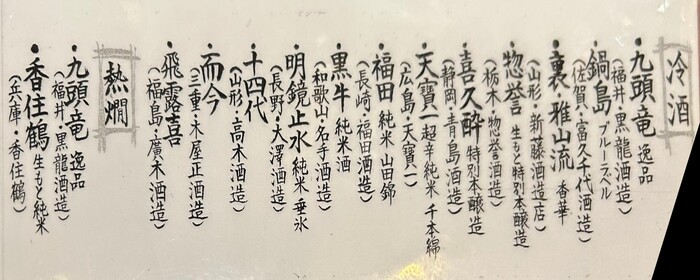 冷酒
・九頭竜 逸品
(福井・黒龍酒造)
・鍋島 ブルーラベル
(佐賀・富久千代酒造)
・裏・雅山流 香華
(山形・新藤酒造店)
・惣誉 生もと特別本醸造
(栃木・惣誉酒造)
・喜久酔 特別本醸造
(静岡・青島酒造)
・天寶一 超辛純米 千本錦
(広島・天寶一)
・福田 純米 山田錦
(長崎・福田酒造)
・黒牛 純米酒
(和歌山・名手酒造)
・明鏡止水 純米 垂氷
(長野・大澤酒造)
・十四代
(山形・高木酒造)
・而今
(三重・木屋正酒造)
・飛露喜
(福島・廣木酒造)
熱燗
・九頭竜 逸品
(福井・黒龍酒造)
・香住鶴 生もと純米
(兵庫・香住鶴)